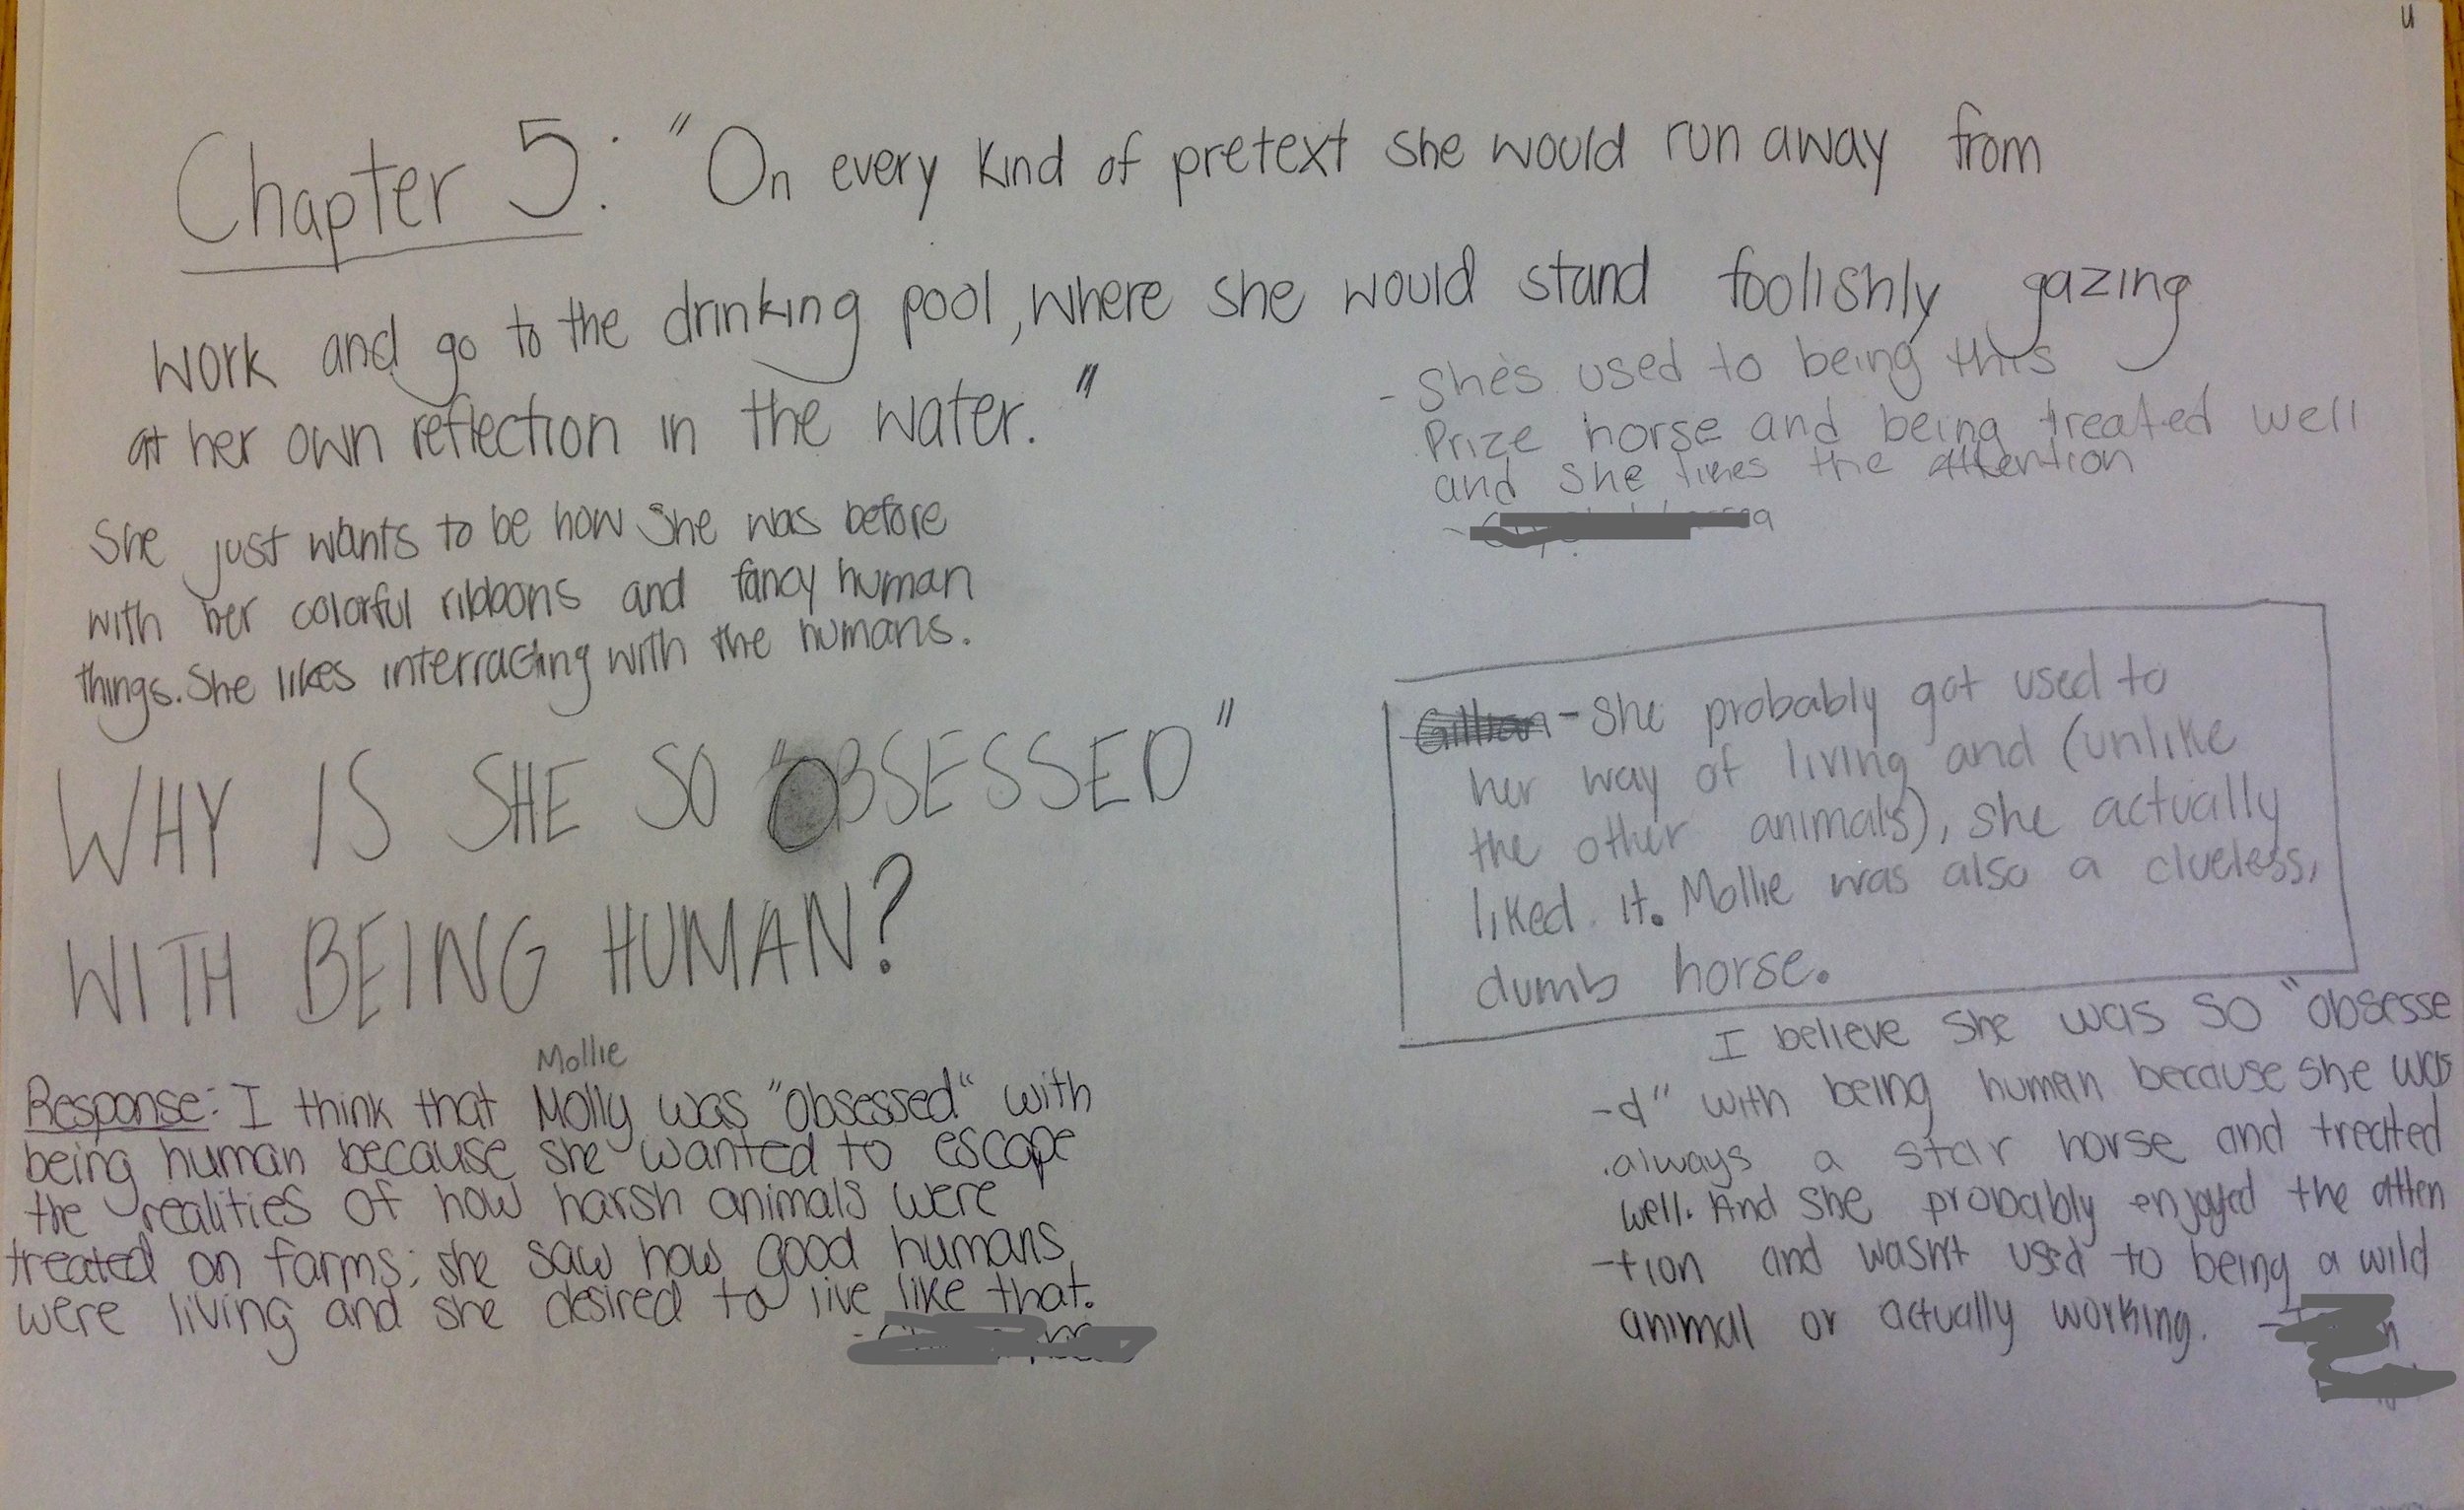 u
Chapter 5: "On every kind of pretext she would run away from
work and go to the drinking pool, where she would stand foolishly gazing
at her own reflection in the water."
She just wants to be how she was before
with her colorful ribbons and fancy human
things. She likes interracting with the humans.
WHY IS SHE SO "OBSESSED"
WITH BEING HUMAN?
Mollie
Response: I think that Molly was "obsessed" with
being human because she wanted to escape
the realities of how harsh animals were
treated on farms; she saw how good humans
were living and she desired to live like that.
- She's used to being this
Prize horse and being treated well
and she likes the attention
- She probably got used to
her way of living and (unlike
the other animals), she actually
liked it. Mollie was also a clueless,
dumb horse.
I believe she was so "obsesse
-d" with being human because she was
always a star horse and treated
well. And she probably enjoyed the atten
-tion and wasn't used to being a wild
animal or actually working.